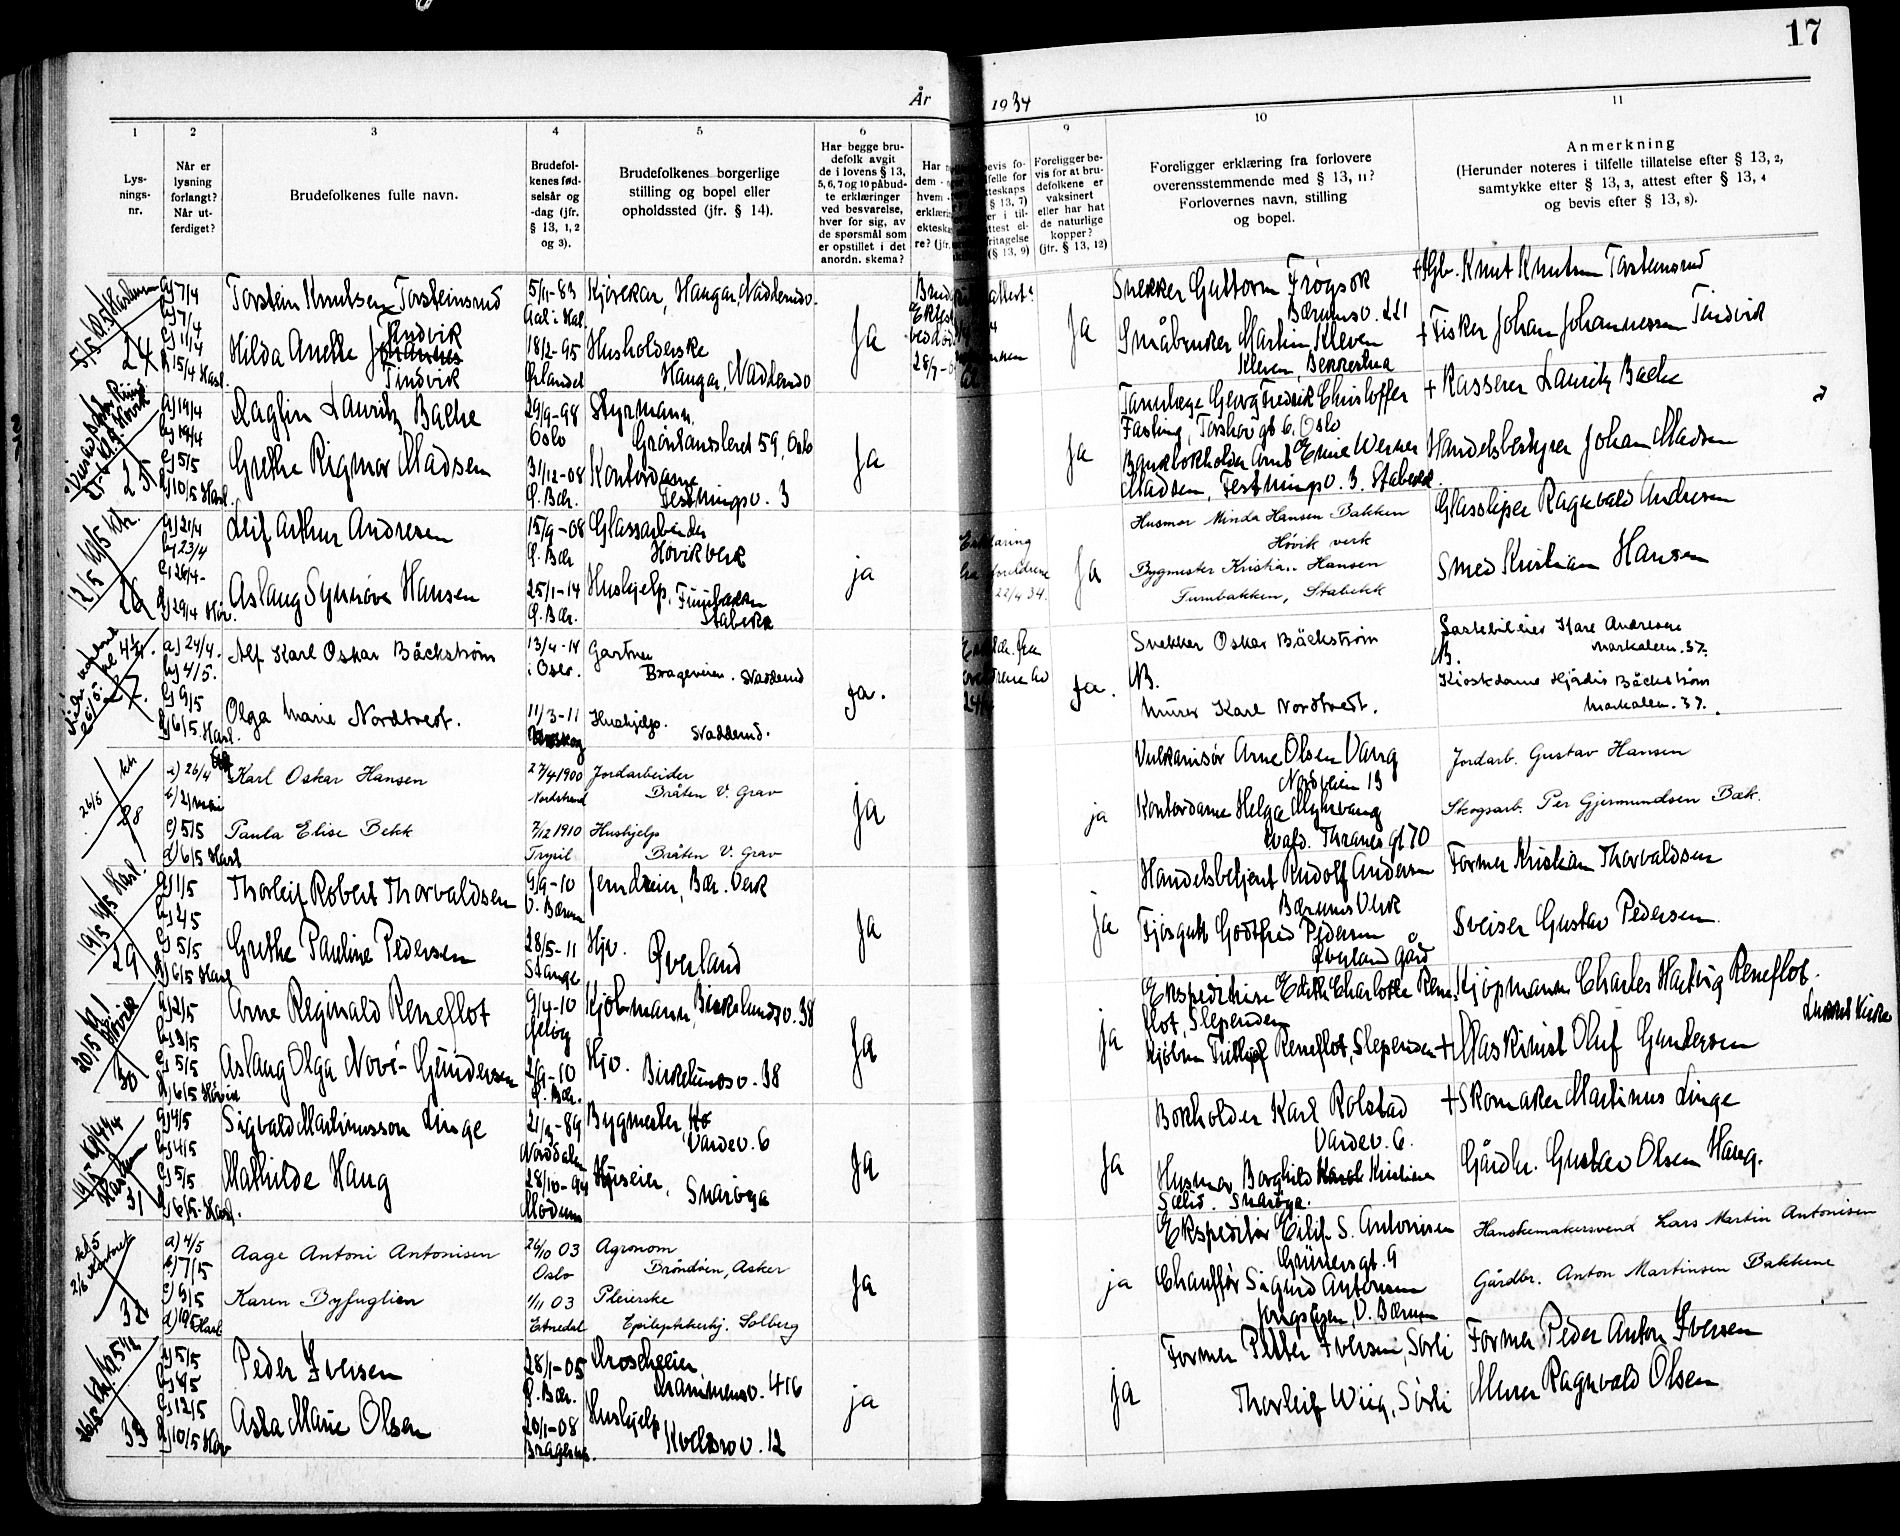 17
År 1934
1
2
3
4
5
6
9
10
11
Lys-
nings-
nr.
Når er
lysning
forlangt?
Når ut-
ferdiget?
Brudefolkenes fulle navn.
Brudefol-
kenes fød-
selsår og
-dag (jfr.
§ 13, 1, 2
og 3).
Brudefolkenes borgerlige
stilling og bopel eller
opholdssted (jfr. § 14).
Har begge bru-
defolk avgit
de i lovens § 13,
5, 6, 7 og 10 påbud-
te erklæringer
ved besvarelse,
hver for sig, av
de spørsmål som
er opstillet i det
anordn. skema?
Foreligger be-
vis for at bru-
defolkene er
vaksinert
eller har hat
de naturlige
kopper?
(jfr. § 13, 12)
Foreligger erklæring fra forlovere
overensstemmende med § 13, 11?
Forlovernes navn, stilling
og bopel.
Anmerkning
(Herunder noteres i tilfelle tillatelse efter § 13, 2,
samtykke efter § 13, 3, attest efter § 13, 4
og bevis efter § 13, 8).
24
a) 7/4
b) 7/4
c) 11/4
d) 15/4 Hasl.
Torstein Knutsen Torsteinsrud
Hilda Anette Johannes
Tindvik
5/11-83
Aal i Hal.
18/2-95
Ørlandet
Kjørekar, Haugar, Nadderudv.
Husholderske
Haugar, Nadderudv
Ja
Ja
Snekker Guttorm Frøgsok
Bærumsv. 221
Småbruker Martin Kleven
Kleven, Bekkestua
+ Gb. Knut Knutsen Torsteinsrud
+ Fisker Johan Johannessen Tindvik
25
a) 19/4
b) 19/4
c) 5/5
d) 10/5 Hasl.
Dagfin Lauritz Bache
Grethe Rigmor Madsen
29/9-98
Oslo
31/12-08
Ø. Bær.
Styrmann
Grønlandsleret 59, Oslo
Kontordame
Festningsv. 3
Ja
Ja
Tannlege Georg Fredrik Christoffer
Fasting, Torshov gt 6. Oslo
Bankbokholder Arnt Emil Werner
Madsen, Festningsv. 3. Stabekk
+ Kasserer Lauritz Bache
Handelsbestyrer Johan Madsen
12/5
26
a) 21/4
b) 23/4
c) 26/4-
d) 29/4 Høv.
Leif Arthur Andresen
Aslaug Synnøve Hansen
15/9-08
Ø. Bær.
25/1-14
Ø. Bær.
Glassarbeider
Høvik verk
Hushjelp, Furubakken
Stabekk
ja
Erklæring
fra foreldrene
22/4 34.
Ja
Husmor Minda Hansen Bakken
Høvik verk
Bygmester Kristian Hansen
Furubakken, Stabekk
Glassliper Ragnvald Andresen
Smed Kristian Hansen
27.
a) 24/4.
b) 4/5.
c) 9/5
d) 6/5. Hasl.
Alf Karl Oskar Bäckstrøm
Olga Marie Nordtvedt.
13/4-14
i Oslo.
11/3-11
Gartner
Brageveien. Nadderud
Hushjelp.
Nadderud.
Ja.
Ja.
Snekker Oskar Bäckstrøm
NB.
Murer Karl Nordtvedt.
Lastebileier Kare Andresen
Markalleen. 37.
NB.
Kioskdame Hjørdis Bäckstrøm
Markalleen. 37.
26/5
28
a) 26/4
b) 2/mai
c) 5/5
d) 6/5 Hasl
Karl Oskar Hansen
Paula Elise Bekk
27/4 1900
Nordstrand
7/12 1910
Trysil
Jordarbeider
Bråten V. Grav
Hushjelp
Bråten V. Grav
ja
ja
Vulkanisør Arne Olsen Vang
Nordveien 13
Kontordame Helga
Jordarb. Gustav Hansen
Skogsarb. Per Gjermundsen Bæk.
19/5
29
a) 1/5
b) 4/5
c) 5/5
d) 6/5 Hasl
Thorleif Robert Thorvaldsen
Grethe Pauline Pedersen
9/9-10
V. Bærum
28/5-11
Stange
Jerndreier, Bær. Verk
Hjv. Øverland
Ja
Ja
Handelsbetjent Rudolf Andersen
Bærums Verk
Fjøsgutt Godtfred Pedersen
Øverland gård
Former Kristian Thorvaldsen
Sveiser Gustav Pedersen
20/5
30
a) 2/5
b) 3/5
c) 5/5
d) 6/5 Høvik
Arne Reginald Reneflot
Aslaug Olga Nové-Gundersen
9/4-10
Geilog
2/9-10
Ø. Bær.
Kjøbmann, Birkelundsv. 38
Hjv. Birkelundsv. 38
Ja
Ja
Ekspeditrise Edith Charlotte Rene-
flot, Slependen
Kjøbm Reneflot, Slependen
Kjøpmann Charles Hartvig Reneflot.
+ Maskinist Oluf Gundersen
31
a) 4/5
b) 4/5
c) 5/5
d) 6/5. Hasl.
Sigvald Martinusson Linge
Mathilde Haug
21/3-89
Norddalen
28/10-94
Modum
Bygmester
Vardev. 6
Huseier, Snarøya
Ja
Ja
Bokholder Karl Rolstad
Vardev. 6.
Husmor Borghild Kristine
Sælid. Snarøya.
+ Skomaker Martinus Linge
Gårdbr. Gustav Olsen Haug.
32
a) 4/5
b) 7/5
c) 9/5
d) 19/5 Hasl
Aage Antoni Antonisen
Karen Byfuglien
26/10 03
Oslo
1/11 03
Etnedal
Agronom
Brøndøen, Asker
Pleierske
Epileptikerhj. Solberg
Ja
ja
Ekspeditør Eilif S. Antonisen
Grünersgt. 9
Chauffør Sigurd Antonsen
V. Bærum
Hanskemakersvend Lars Martin Antonisen
Gårdbr. Anton Martinsen Bakkene
26/5
33
a) 5/5
b) 4/5
c) 12/5
d) 10/5 Høv
Peder Iversen
Asta Marie Olsen
28/1-05
Ø. Bær.
20/1-08
Bragernes.
Droscheeier
Drammensv. 416
Hushjelp
Kveldsrov. 12
ja
ja
Former Petter Iversen, Sørli
Thorleif Wiig, Sørli
Former Peder Anton Iversen
Murer Ragnvald Olsen